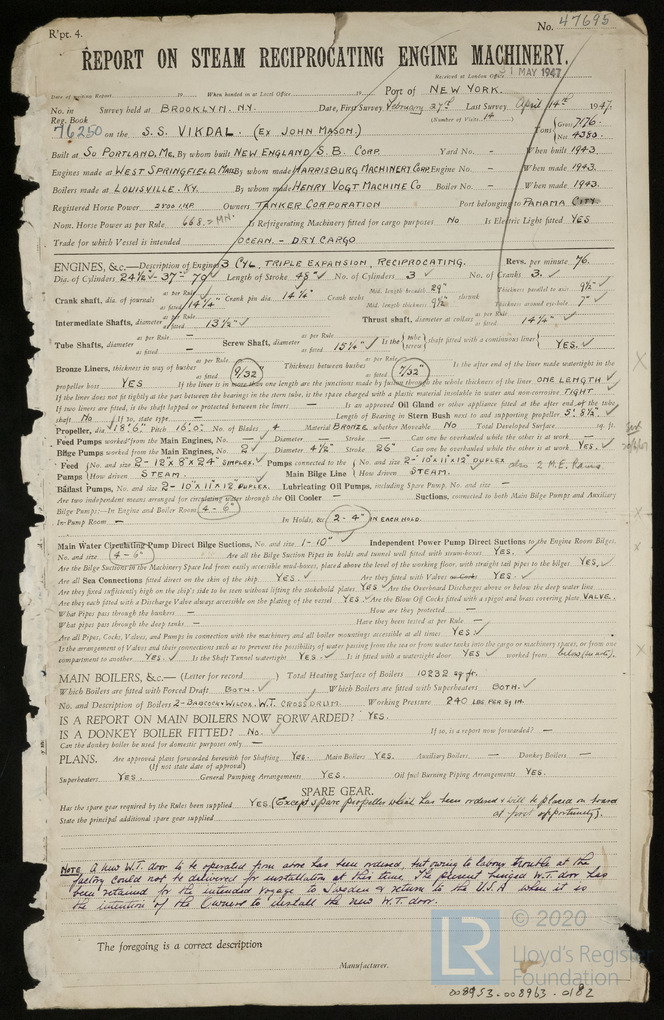 R'pt. 4.
No. 47695
REPORT ON STEAM RECIPROCATING ENGINE MACHINERY.
Received at London Office 31 MAY 1947
Date of writing Report 19 When handed in at Local Office 19 Port of NEW YORK.
No. in Survey held at BROOKLYN. N.Y. Date, First Survey February 27th Last Survey April 14th 1947.
Reg. Book (Number of Visits 14)
76250 on the S.S. VIKDAL. (EX JOHN MASON.) Tons Gross 7176. Net 4380.
Built at So PORTLAND, ME. By whom built NEW ENGLAND S.B. CORP. Yard No. - When built 1943.
Engines made at WEST SPRINGFIELD, MASS By whom made HARRISBURG MACHINERY CORP. Engine No. - When made 1943.
Boilers made at LOUISVILLE. KY. By whom made HENRY VOGT MACHINE CO Boiler No. - When made 1943.
Registered Horse Power 2500 IHP Owners TANKER CORPORATION Port belonging to PANAMA CITY.
Nom. Horse Power as per Rule 668 = MN. Is Refrigerating Machinery fitted for cargo purposes NO Is Electric Light fitted YES
Trade for which Vessel is intended OCEAN - DRY CARGO
ENGINES, &c.—Description of Engines 3 CYL. TRIPLE EXPANSION, RECIPROCATING. Revs. per minute 76.
Dia. of Cylinders 24½"- 37"- 70" Length of Stroke 48" No. of Cylinders 3 No. of Cranks 3.
Crank shaft, dia. of journals as per Rule as fitted 14¼" Crank pin dia. 14¼" Crank webs Mid. length breadth 29" Mid. length thickness 9½" shrunk Thickness parallel to axis 9½" Thickness around eye-hole 7"
Intermediate Shafts, diameter as per Rule as fitted 13½" Thrust shaft, diameter at collars as per Rule as fitted 14¼"
Tube Shafts, diameter as per Rule - as fitted - Screw Shaft, diameter as per Rule as fitted 15¼" Is the tube screw shaft fitted with a continuous liner YES.
Bronze Liners, thickness in way of bushes as per Rule as fitted 9/32" Thickness between bushes as per Rule as fitted 7/32" Is the after end of the liner made watertight in the
propeller boss YES If the liner is in more than one length are the junctions made by fusion through the whole thickness of the liner ONE LENGTH
If the liner does not fit tightly at the part between the bearings in the stern tube, is the space charged with a plastic material insoluble in water and non-corrosive TIGHT
If two liners are fitted, is the shaft lapped or protected between the liners — Is an approved Oil Gland or other appliance fitted at the after end of the tube
shaft No If so, state type - Length of Bearing in Stern Bush next to and supporting propeller 5'. 8¼".
Propeller, dia 18'. 6". Pitch 16'. 0". No. of Blades 4 Material BRONZE whether Moveable No Total Developed Surface sq. ft.
Feed Pumps worked from the Main Engines, No. — Diameter — Stroke — Can one be overhauled while the other is at work —
Bilge Pumps worked from the Main Engines, No. 2 Diameter 4½" Stroke 26" Can one be overhauled while the other is at work YES.
Feed Pumps No. and size 2- 12"x 8"x 24" SIMPLEX. How driven STEAM. Pumps connected to the Main Bilge Line No. and size 2-10"x11"x12" DUPLEX How driven STEAM. also 2 M.E. Rams.
Ballast Pumps, No. and size 2- 10"x 11"x 12" DUPLEX. Lubricating Oil Pumps, including Spare Pump, No. and size —
Are two independent means arranged for circulating water through the Oil Cooler — Suctions, connected to both Main Bilge Pumps and Auxiliary
Bilge Pumps:—In Engine and Boiler Room 4 - 6"
In Pump Room — In Holds, &c. 2 - 4" IN EACH HOLD.
Main Water Circulating Pump Direct Bilge Suctions, No. and size 1- 10" Independent Power Pump Direct Suctions to the Engine Room Bilges,
No. and size 4 - 6" Are all the Bilge Suction Pipes in holds and tunnel well fitted with strum-boxes YES.
Are the Bilge Suctions in the Machinery Space led from easily accessible mud-boxes, placed above the level of the working floor, with straight tail pipes to the bilges YES.
Are all Sea Connections fitted direct on the skin of the ship YES. Are they fitted with Valves or Cocks YES.
Are they fixed sufficiently high on the ship's side to be seen without lifting the stokehold plates YES Are the Overboard Discharges above or below the deep water line
Are they each fitted with a Discharge Valve always accessible on the plating of the vessel YES Are the Blow Off Cocks fitted with a spigot and brass covering plate VALVE.
What Pipes pass through the bunkers — How are they protected —
What pipes pass through the deep tanks — Have they been tested as per Rule —
Are all Pipes, Cocks, Valves, and Pumps in connection with the machinery and all boiler mountings accessible at all times YES.
Is the arrangement of Valves and their connections such as to prevent the possibility of water passing from the sea or from water tanks into the cargo or machinery spaces, or from one
compartment to another YES. Is the Shaft Tunnel watertight YES. Is it fitted with a watertight door YES worked from below
MAIN BOILERS, &c.—(Letter for record ) Total Heating Surface of Boilers 10232 sq. ft.
Which Boilers are fitted with Forced Draft BOTH. Which Boilers are fitted with Superheaters BOTH.
No. and Description of Boilers 2-BABCOCK & WILCOX, W.T. CROSS DRUM. Working Pressure 240 LBS PER SQ IN.
IS A REPORT ON MAIN BOILERS NOW FORWARDED? YES.
IS A DONKEY BOILER FITTED? NO. If so, is a report now forwarded? —
Can the donkey boiler be used for domestic purposes only —
PLANS. Are approved plans forwarded herewith for Shafting Yes. Main Boilers YES. Auxiliary Boilers — Donkey Boilers —
(If not state date of approval)
Superheaters YES. General Pumping Arrangements YES. Oil fuel Burning Piping Arrangements YES.
SPARE GEAR.
Has the spare gear required by the Rules been supplied YES. (Except spare propeller which has been ordered & will be placed on board
State the principal additional spare gear supplied at first opportunity).
NOTE A new W.T. door to be operated from above has been ordered, but owing to labour trouble at the
factory could not be delivered for installation at this time. The present hinged W.T. door has
been retained for the intended voyage to Sweden & return to the U.S.A when it is
the intention of the Owners to install the new W.T. door.
The foregoing is a correct description
Manufacturer.
© 2020
LR
Lloyd's Register
Foundation
008953-008963-0182